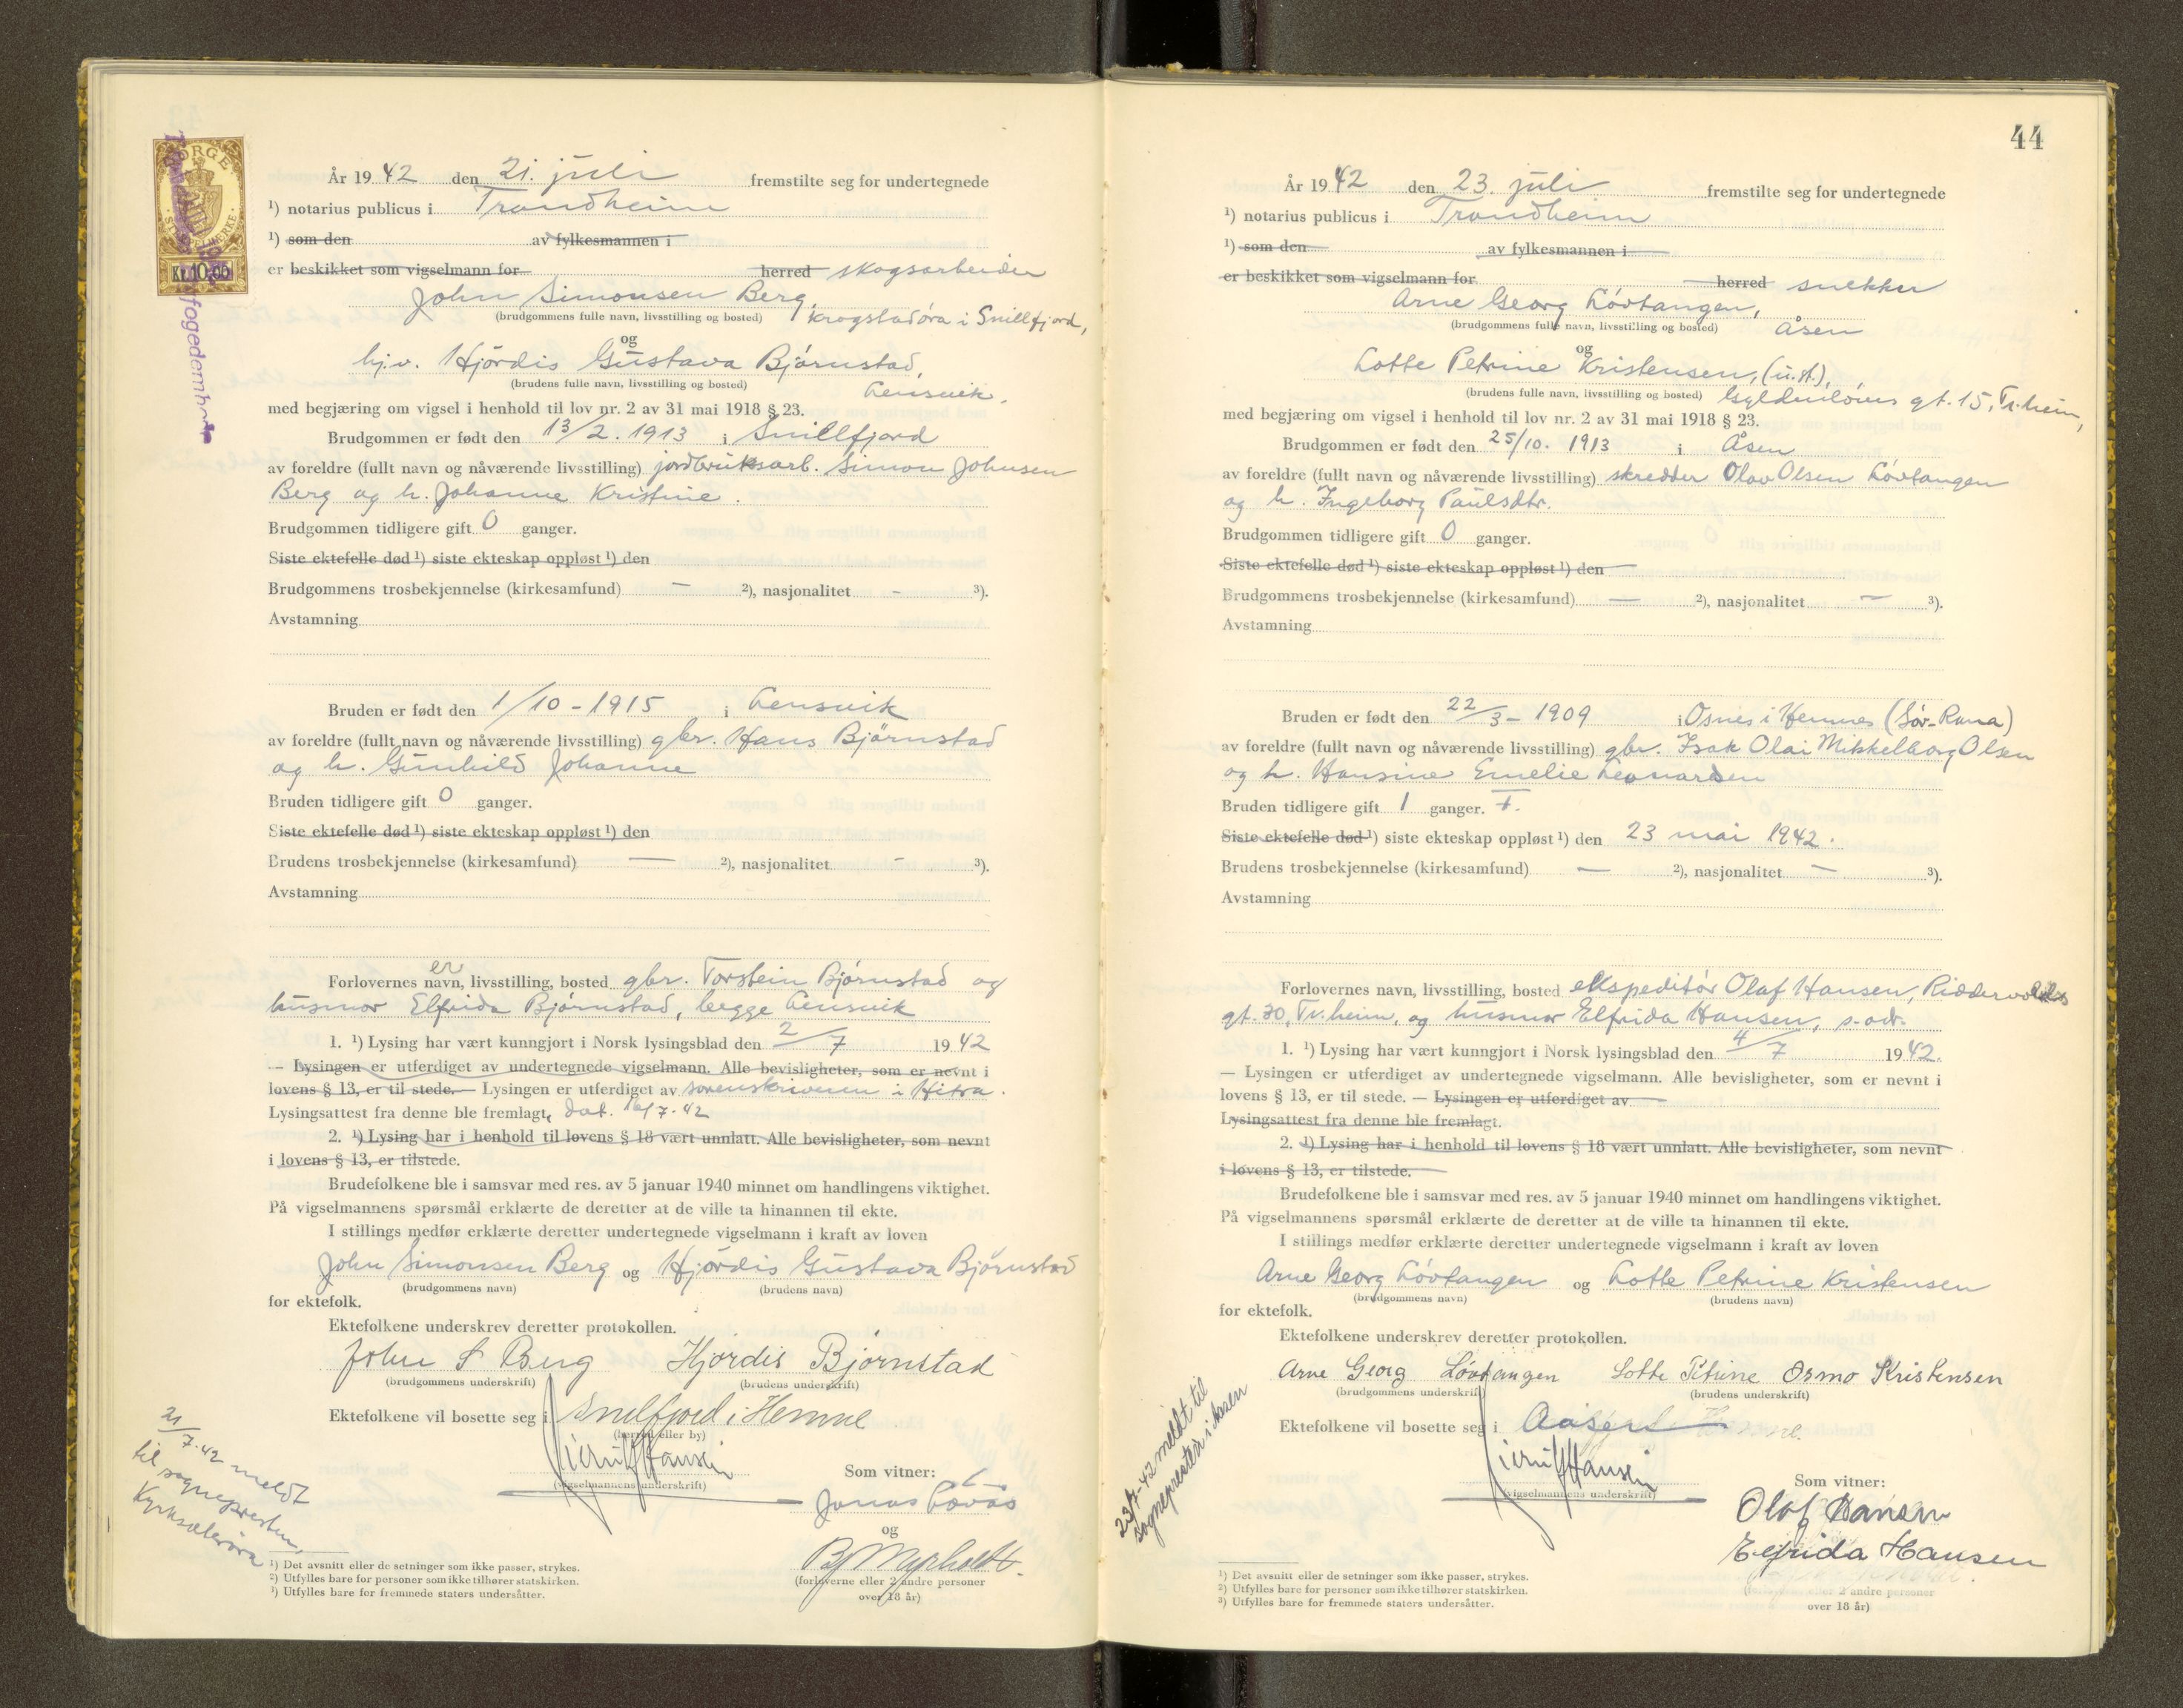 NORGE
STEMPELMERKE
Kr. 10,00
År 1942 den 21. juli fremstilte seg for undertegnede
¹) notarius publicus i Trondheim
¹) som den av fylkesmannen i
er beskikket som vigselmann for herred skogsarbeider
John Simonsen Berg,
(brudgommens fulle navn, livsstilling og bosted) Krogstadöra i Snillfjord,
og
hj.v. Hjördis Gustava Björnstad,
(brudens fulle navn, livsstilling og bosted) Lensvik.
med begjæring om vigsel i henhold til lov nr. 2 av 31 mai 1918 § 23.
Brudgommen er født den 13/2. 1913 i Snillfjord
av foreldre (fullt navn og nåværende livsstilling) jordbruksarb. Simon Johnsen
Berg og h. Johanne Kristine.
Brudgommen tidligere gift 0 ganger.
Siste ektefelle død ¹) siste ekteskap oppløst ¹) den
Brudgommens trosbekjennelse (kirkesamfund) — ²), nasjonalitet - ³).
Avstamning
Bruden er født den 1/10 - 1915 i Lensvik
av foreldre (fullt navn og nåværende livsstilling) gbr. Hans Björnstad
og h. Gunhild Johanne
Bruden tidligere gift 0 ganger.
Siste ektefelle død ¹) siste ekteskap oppløst ¹) den
Brudens trosbekjennelse (kirkesamfund) — ²), nasjonalitet - ³).
Avstamning
Forlovernes er navn, livsstilling, bosted gbr. Torstein Björnstad og
husmor Elfrida Björnstad, begge Lensvik
1. ¹) Lysing har vært kunngjort i Norsk lysingsblad den 2/7 1942
— Lysingen er utferdiget av undertegnede vigselmann. Alle bevisligheter, som er nevnt i
lovens § 13, er til stede. — Lysingen er utferdiget av sorenskriveren i Hitra.
Lysingsattest fra denne ble fremlagt, dat. 16/7-42
2. ¹) Lysing har i henhold til lovens § 18 vært unnlatt. Alle bevisligheter, som nevnt
i lovens § 13, er tilstede.
Brudefolkene ble i samsvar med res. av 5 januar 1940 minnet om handlingens viktighet.
På vigselmannens spørsmål erklærte de deretter at de ville ta hinannen til ekte.
I stillings medfør erklærte deretter undertegnede vigselmann i kraft av loven
John Simonsen Berg og Hjördis Gustava Björnstad
(brudgommens navn) (brudens navn)
for ektefolk.
Ektefolkene underskrev deretter protokollen.
John S Berg Hjørdis Bjørnstad
(brudgommens underskrift) (brudens underskrift)
Ektefolkene vil bosette seg i Snilfjord i Hemne
(herred eller by)
Hansen
(vigselmannens underskrift)
Som vitner:
Jonas Løvås
og
(forloverne eller 2 andre personer
over 18 år)
21/7-42 meldt
til sognepresten,
Kyrksæterøra
¹) Det avsnitt eller de setninger som ikke passer, strykes.
²) Utfylles bare for personer som ikke tilhører statskirken.
³) Utfylles bare for fremmede staters undersåtter.
44
År 1942 den 23. juli fremstilte seg for undertegnede
¹) notarius publicus i Trondheim
¹) som den av fylkesmannen i
er beskikket som vigselmann for herred snekker
Arne Georg Lövtangen,
(brudgommens fulle navn, livsstilling og bosted) Åsen
og
Lotte Petrine Kristensen, (u.st.),
(brudens fulle navn, livsstilling og bosted) Gyldenlöves gt. 15, Tr.heim,
med begjæring om vigsel i henhold til lov nr. 2 av 31 mai 1918 § 23.
Brudgommen er født den 25/10. 1913 i Åsen
av foreldre (fullt navn og nåværende livsstilling) skredder Olav Olsen Lövtangen
og h. Ingeborg Paulsdtr.
Brudgommen tidligere gift 0 ganger.
Siste ektefelle død ¹) siste ekteskap oppløst ¹) den
Brudgommens trosbekjennelse (kirkesamfund) — ²), nasjonalitet — ³).
Avstamning
Bruden er født den 22/3 - 1909 i Osnes i Hemnes (Sör-Rana)
av foreldre (fullt navn og nåværende livsstilling) gbr. Isak Olai Mikkelborg Olsen
og h. Hansine Emelie Leonardsen
Bruden tidligere gift 1 ganger. F.
Siste ektefelle død ¹) siste ekteskap oppløst ¹) den 23 mai 1942.
Brudens trosbekjennelse (kirkesamfund) — ²), nasjonalitet — ³).
Avstamning
Forlovernes navn, livsstilling, bosted ekspeditör Olaf Hansen, Riddervolds
gt. 30, Tr.heim, og husmor Elfrida Hansen, s. adr.
1. ¹) Lysing har vært kunngjort i Norsk lysingsblad den 4/7 1942.
— Lysingen er utferdiget av undertegnede vigselmann. Alle bevisligheter, som er nevnt i
lovens § 13, er til stede. — Lysingen er utferdiget av
Lysingsattest fra denne ble fremlagt.
2. ¹) Lysing har i henhold til lovens § 18 vært unnlatt. Alle bevisligheter, som nevnt
i lovens § 13, er tilstede.
Brudefolkene ble i samsvar med res. av 5 januar 1940 minnet om handlingens viktighet.
På vigselmannens spørsmål erklærte de deretter at de ville ta hinannen til ekte.
I stillings medfør erklærte deretter undertegnede vigselmann i kraft av loven
Arne Georg Lövtangen og Lotte Petrine Kristensen
(brudgommens navn) (brudens navn)
for ektefolk.
Ektefolkene underskrev deretter protokollen.
Arne Georg Løvtangen Lotte Petrine Osmo Kristensen
(brudgommens underskrift) (brudens underskrift)
Ektefolkene vil bosette seg i Aasen
Hansen
(vigselmannens underskrift)
Som vitner:
Olaf Hansen
Elfrida Hansen
(forloverne eller 2 andre personer
over 18 år)
23/7-42 meldt til
sognepresten i Aasen
¹) Det avsnitt eller de setninger som ikke passer, strykes.
²) Utfylles bare for personer som ikke tilhører statskirken.
³) Utfylles bare for fremmede staters undersåtter.